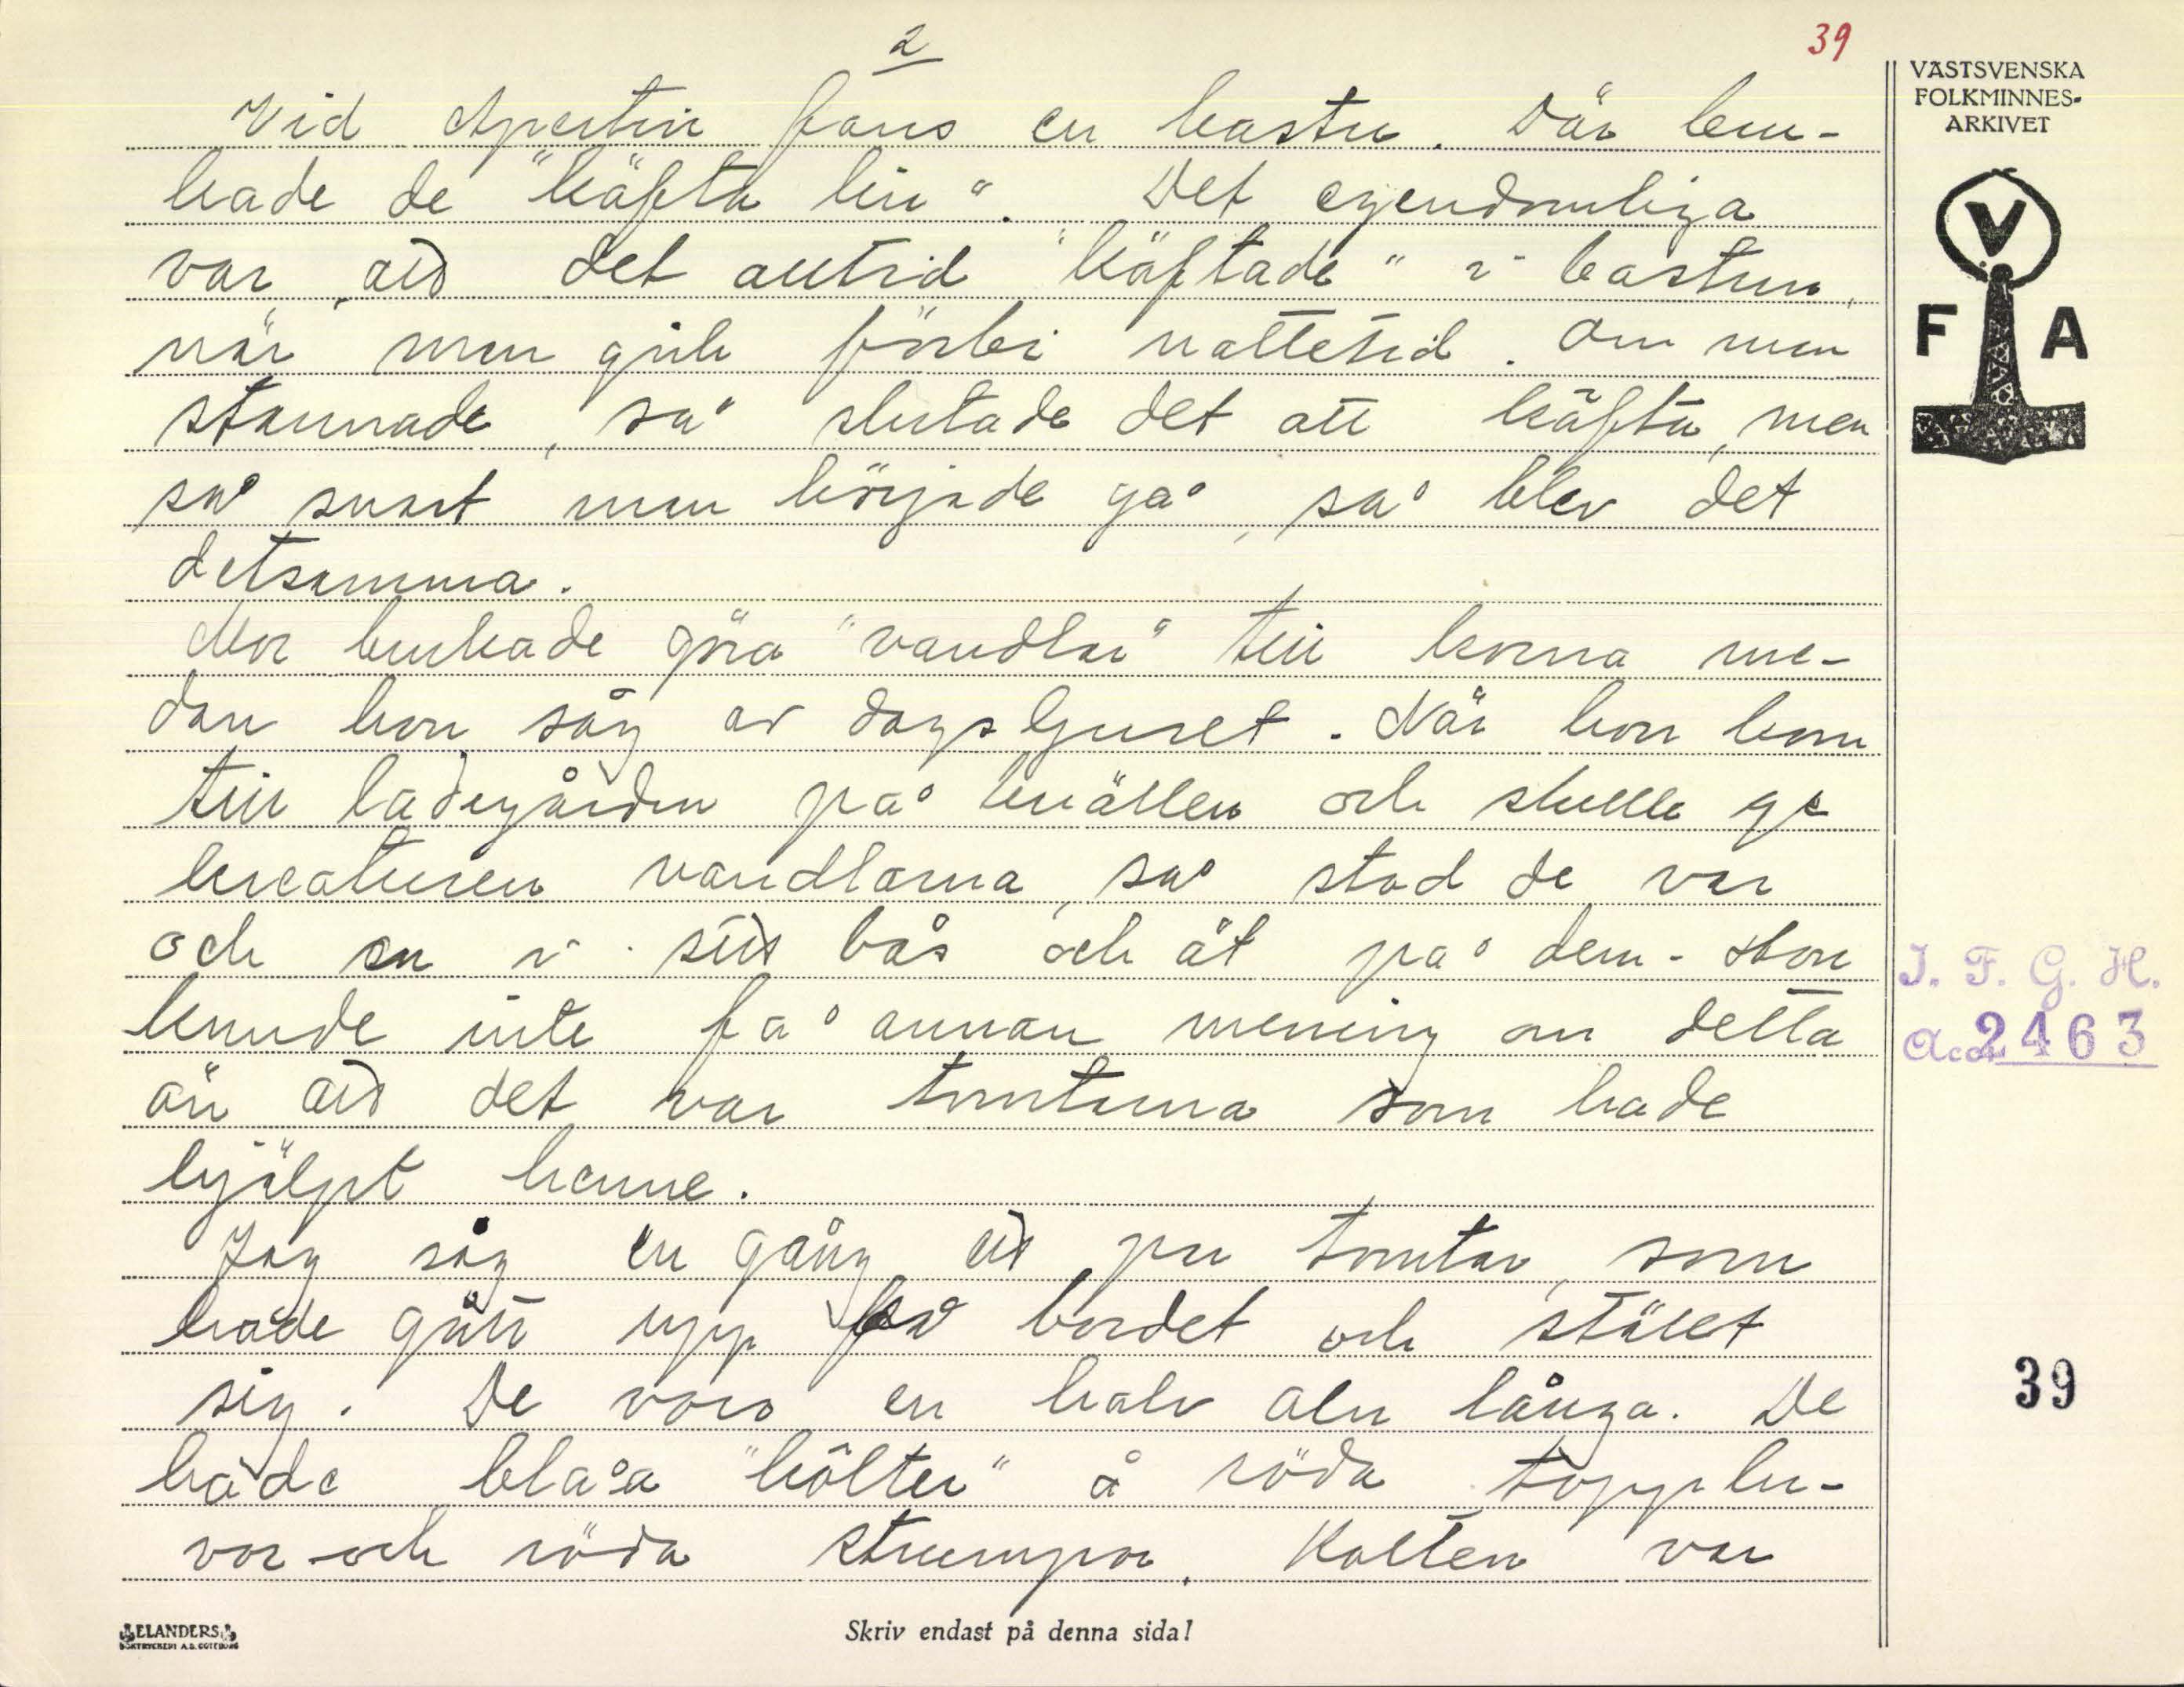 2
39
Vid Apertin fans en bastu. Där bru-
kade de "käfta lin". Det egendomliga
var, att det alltid "käftade" i bastun,
när man gick förbi nattetid. Om man
stannade, så slutade det att käfta, men
så snart man började gå, så blev det
detsamma.
Mor brukade göra "vandlar" till korna me-
dan hon såg av dagsljuset. När hon kom
till ladugården på kvällen och skulle ge
kreaturen vandlarna, så stod de var
och en i sitt bås och åt på dem. Hon
kunde inte få annan mening om detta
än att det var tomtarna som hade
hjälpt henne.
Jag såg en gång ett par tomtar, som
hade gått upp på bordet och ställt
sig. De voro en halv aln långa. De
hade blåa "költer" å röda topplu-
vor och röda strumpor. Kolten var
VÄSTSVENSKA
FOLKMINNES-
ARKIVET
V
F A
I. F. G. H.
Acc. 2463
39
ELANDERS
BOKTRYCKERI A.B. GÖTEBORG
Skriv endast på denna sida!